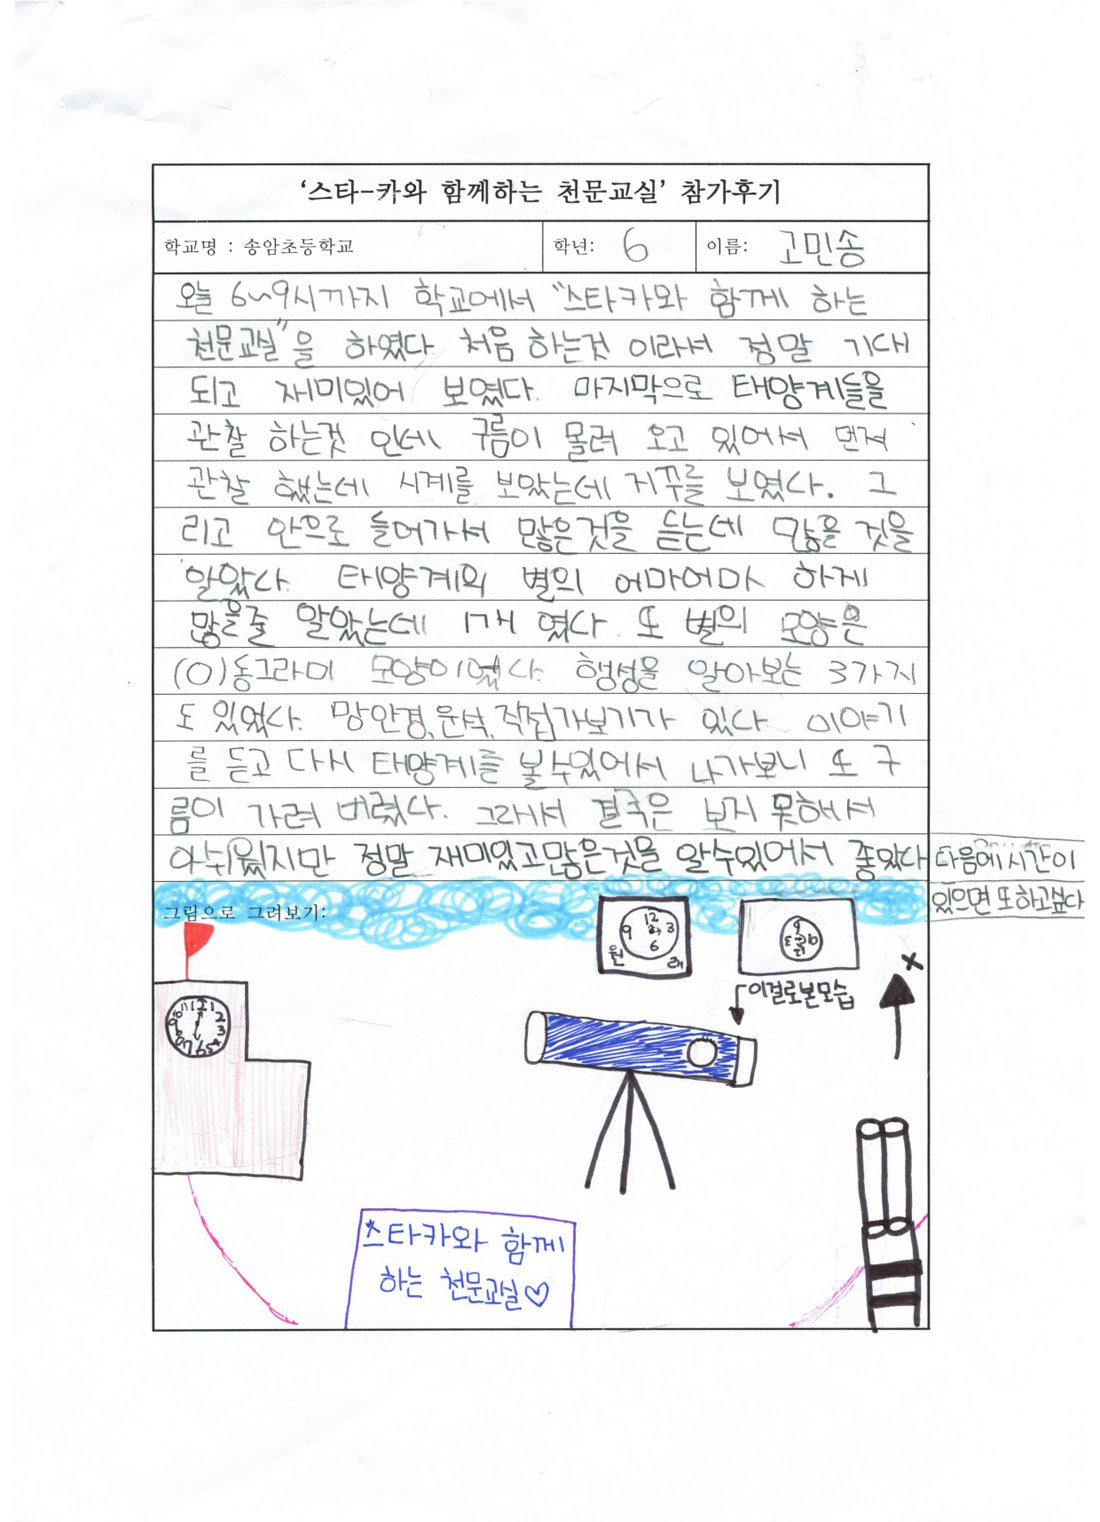 '스타-카와 함께하는 천문교실' 참가후기
학교명 : 송암초등학교 학년: 6 이름: 고민송
오늘 6~9시까지 학교에서 "스타카와 함께 하는
천문교실"을 하였다. 처음 하는것 이라서 정말 기대
되고 재미있어 보였다. 마지막으로 태양계들을
관찰 하는것 인데 구름이 몰려 오고 있어서 먼저
관찰 했는데 시계를 보았는데 거꾸로 보였다. 그
리고 안으로 들어가서 많은것을 듣는데 많을 것을
알았다. 태양계의 별의 어마어마 하게
많을줄 알았는데 1개 였다. 또 별의 모양은
(O)동그라미 모양이였다. 행성을 알아보는 3가지
도 있었다. 망안경, 운석, 직접가보기가 있다. 이야기
를 듣고 다시 태양계를 볼수있어서 나가보니 또 구
름이 가려 버렸다. 그래서 결국은 보지 못해서
아쉬웠지만 정말 재미있고많은것을 알수있어서 좋았다 다음에 시간이
있으면 또하고싶다
그림으로 그려보기:
12
9 3
6
원 래
이걸로본모습
스타카와 함께
하는 천문교실♡